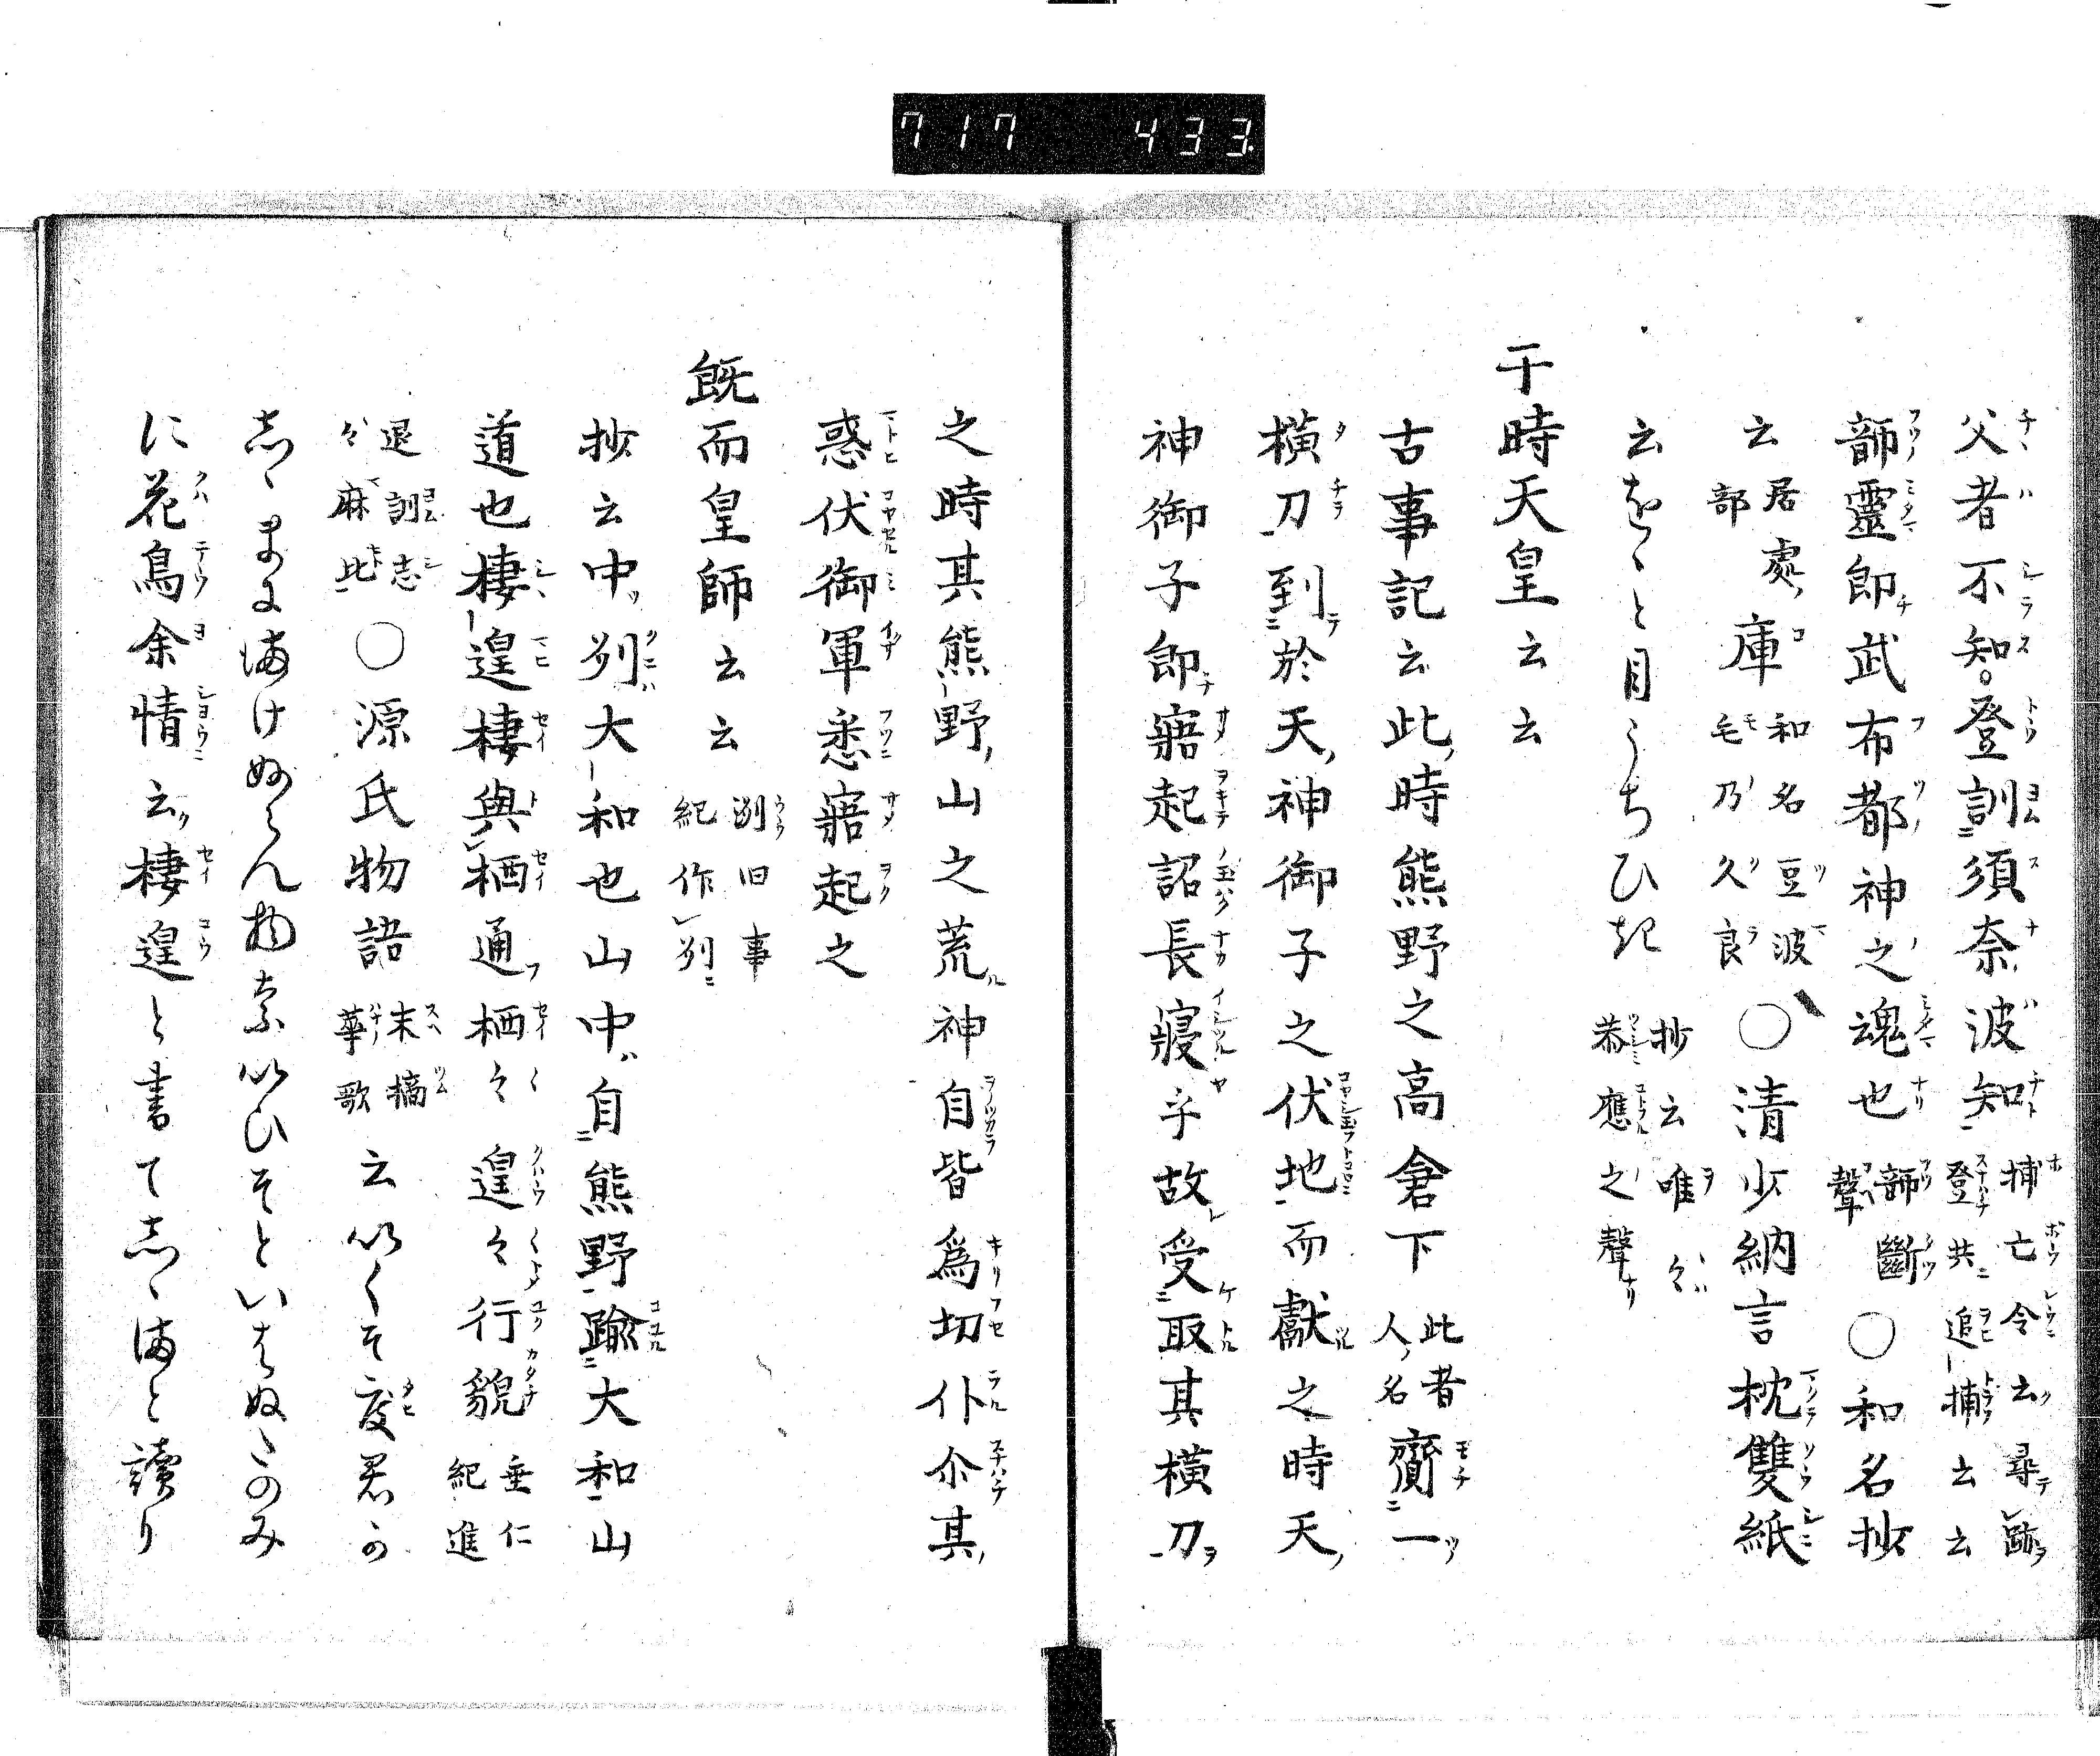 717 433
父者不知。登訓須奈波知 捕亡令云尋跡登共追捕云云
韴靈即武布都神之魂也 韴斷聲 ○和名抄
云 居處部 庫 和名豆波毛乃久良 ○清少納言枕雙紙
云をゝと目うちひき 抄云唯々恭應之聲
于時天皇云云
古事記云此時熊野之高倉下 此者人名 齎一
横刀到於天神御子之伏地而獻之時天
神御子即寤起詔長寢乎故受取其横刀
之時其熊野山之荒神自皆爲切仆尒其
惑伏御軍悉寤起之
既而皇師云云 旧事紀作
抄云中列大和也山中自熊野踰大和山
道也棲遑棲與栖通栖々遑々行貌 垂仁紀進
退訓志々麻比 ○源氏物語 末摘華歌 云いくそ度君か
志ゝまに満けぬらん物奈いひそといはぬたのみ
に花鳥余情云棲遑と書て志ゝ満と讀り